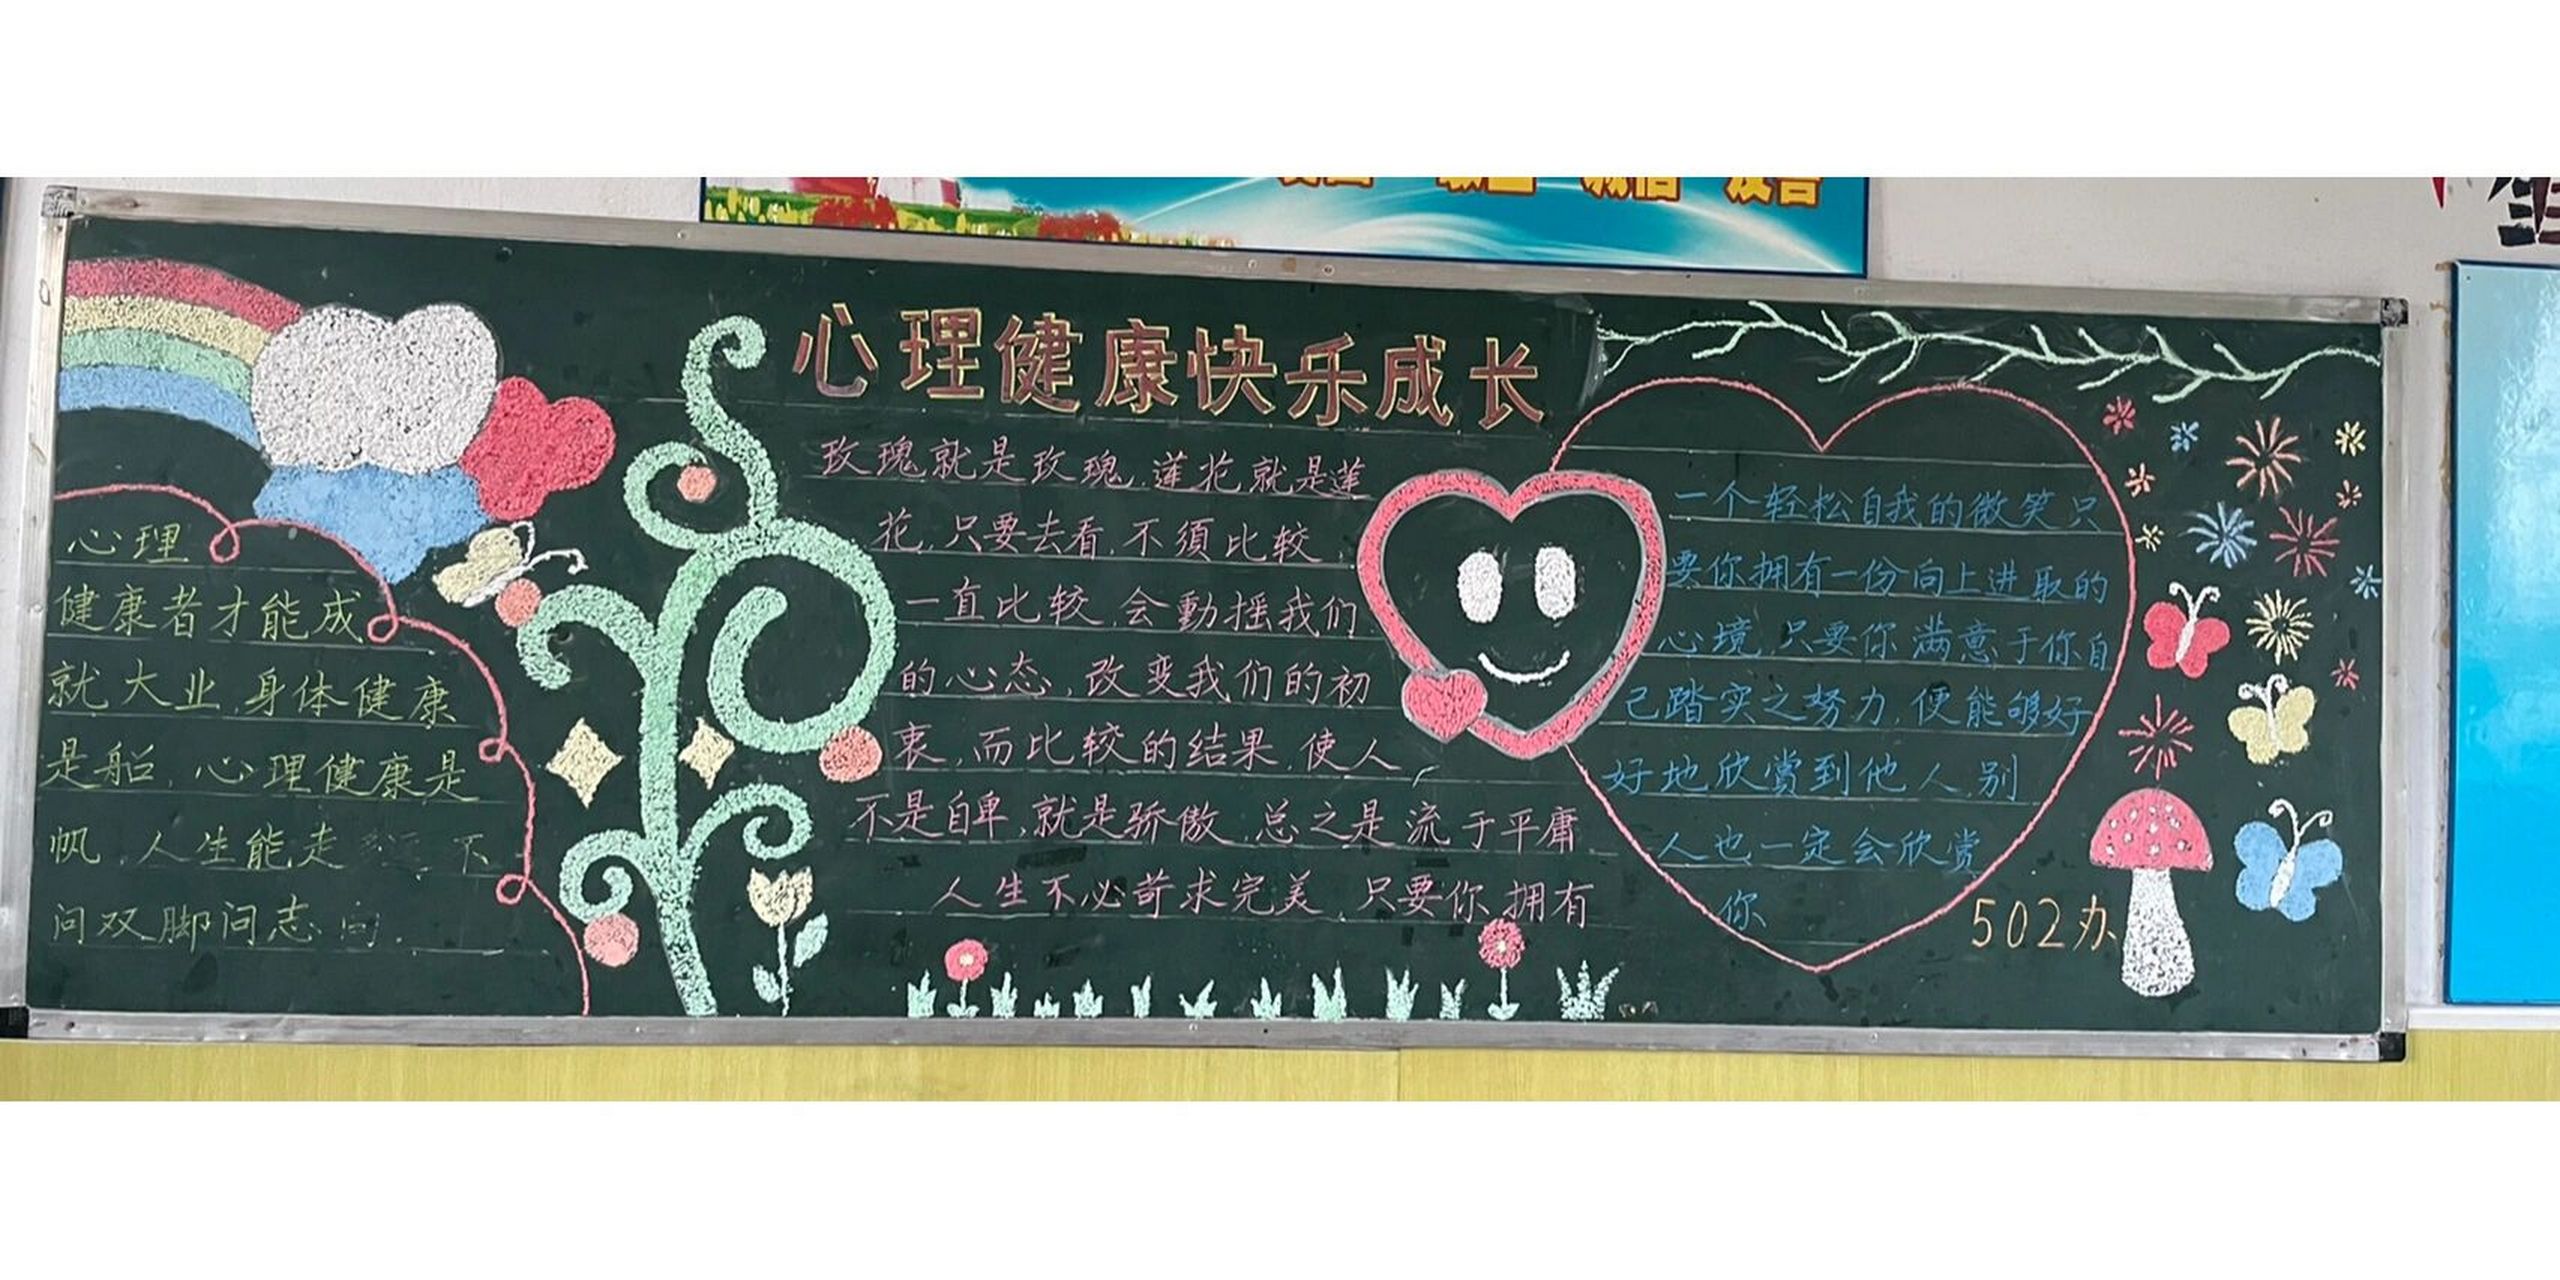 心理健康快乐成长
心理
健康者才能成
就大业,身体健康
是船,心理健康是
帆,人生能走多远,不
问双脚问志向.
玫瑰就是玫瑰,莲花就是莲
花,只要去看,不须比较
一直比较,会動摇我们
的心态,改变我们的初
衷,而比较的结果,使人
不是自卑,就是骄傲,总之是流于平庸
人生不必苛求完美,只要你拥有
一个轻松自我的微笑只
要你拥有一份向上进取的
心境,只要你满意于你自
己踏实之努力,便能够好
好地欣赏到他人,别
人也一定会欣赏
你
502办